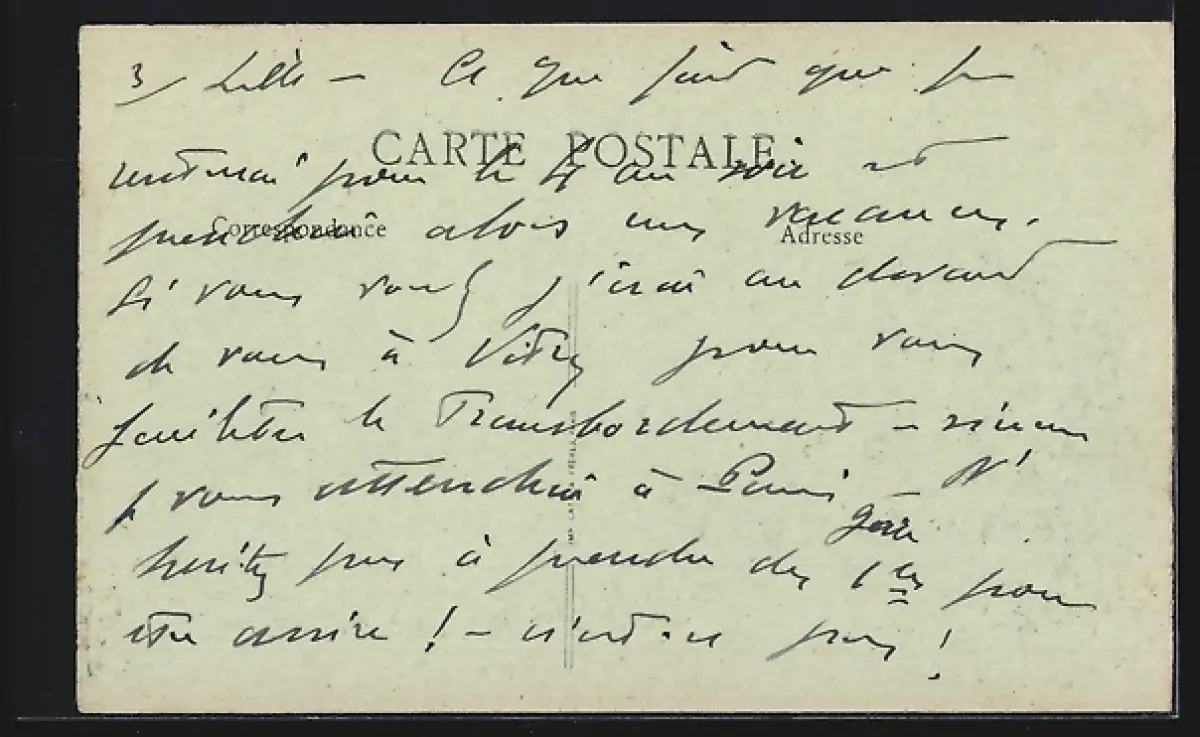 3/ Lille - Ce qui fait que je
rentrerai pour le 4 au soir et
CARTE POSTALE
Correspondance
Adresse
prendrai alors mes vacances.
Si vous voulez j'irai au devant
de vous à Vitry pour vous
faciliter le Transbordement - sinon
je vous attendrai à Paris gare N'
hésitez pas à prendre des 1ères pour
être assise ! - n'est-ce pas !